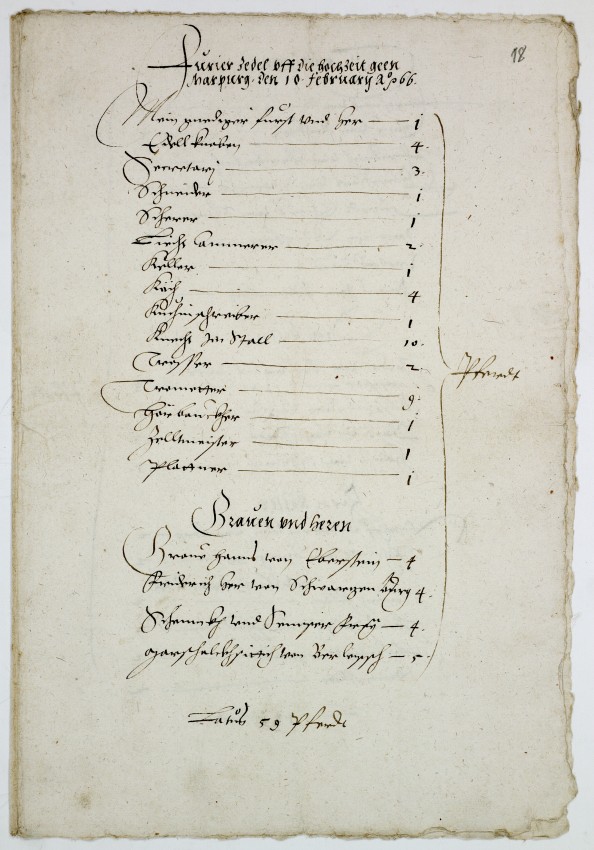 18
Furier Zedel uff die hochzeit geen
Marpurg den 10 february Ao 66.
Mein gnediger furst und her — 1
Edell knaben — 4
Secretarj — 3
Schneider — 1
Scherer — 1
Liecht Cammerer — 2
Keller — 1
Köch — 4
Kuchinschreiber — 1
Knecht Im Stall — 10
Trosser — 2
Trometter — 9
Heerbaucker — 1
Zeltmeister — 1
Plattner — 1
Pferdt
Graven und heren
Grave Hanns von Eberstein — 4
Friderich her von Schwarzenburg 4
Schennckh und Semper frey — 4
Marschalckh von Berlepsch — 5
Latus 59 Pferdt